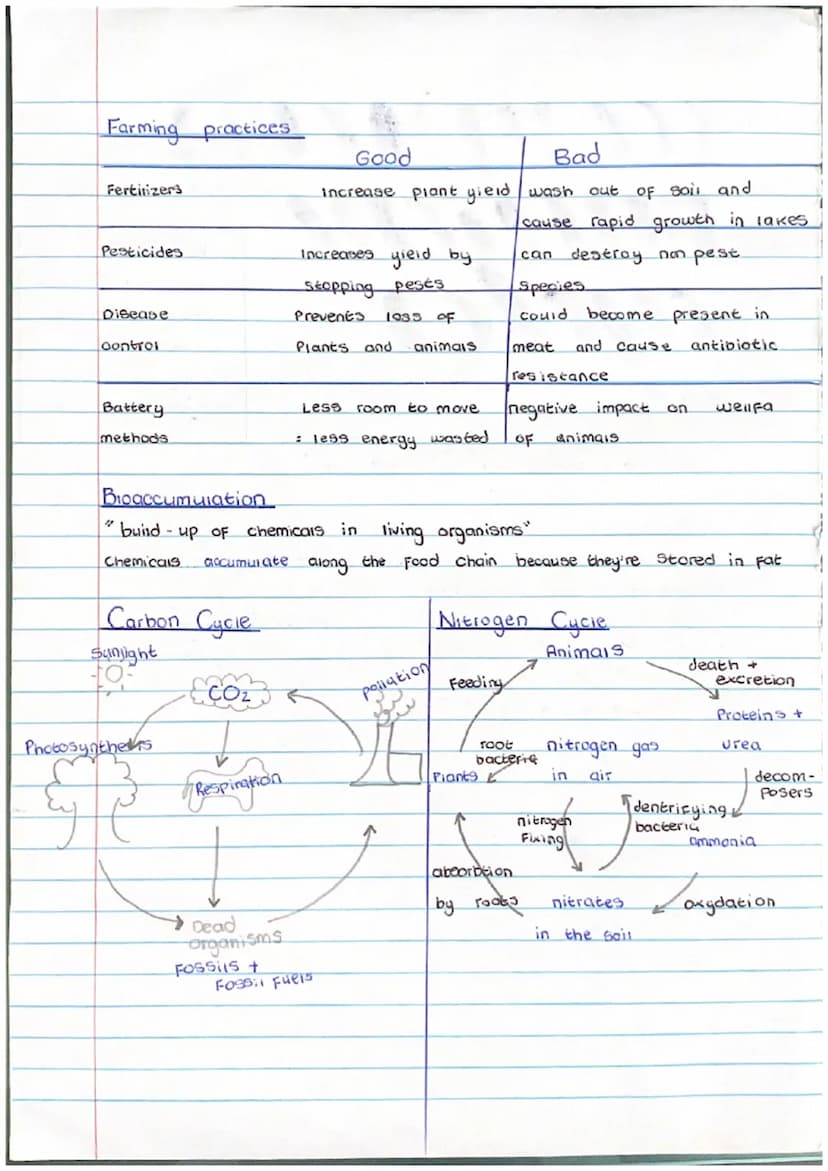 Farming practices
Good Bad
Fertilizers Increase plant yield wash out of soil and
cause rapid growth in lakes
Pesticides Increases yield by can destroy non pest
stopping pests species
Disease Prevents loss of could become present in
control Plants and animals meat and cause antibiotic
resistance
Battery Less room to move negative impact on wellfa
methods : less energy wasted of animals
Bioaccumulation
"build-up of chemicals in living organisms"
Chemicals accumulate along the food chain because they're stored in fat
Carbon Cycle
Sunlight
CO2
pollution
Photosynthesis
Respiration
Dead
organisms
Fossils +
Fossil Fuels
Nitrogen Cycle
Animals
Feeding
death +
excretion
Proteins +
urea
root
bacteria
nitrogen gas
in air
Plants
decom-
posers
nitrogen
Fixing
dentrifying
bacteria
ammonia
absorbtion
by roots
nitrates
in the soil
oxydation